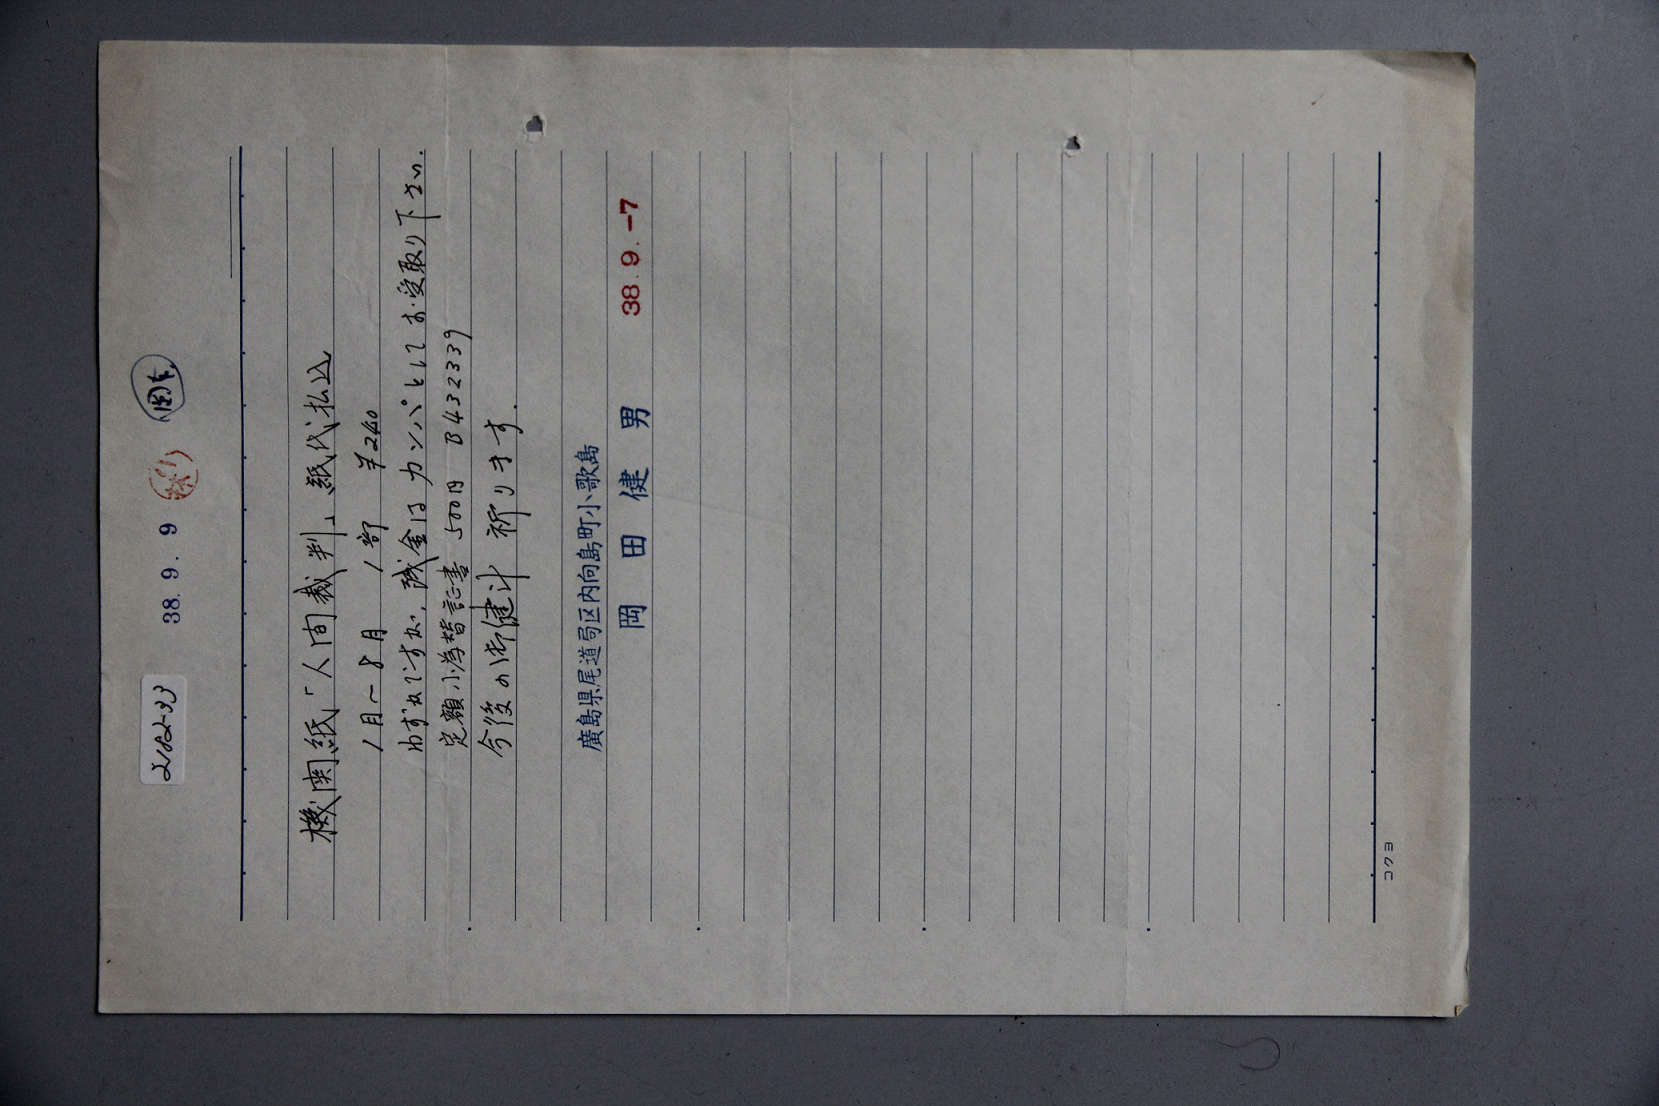 2182-33
38.9.9
機関紙「人間裁判」紙代払込
1月〜8月 1部 ¥240
わずかですが、残金はカンパとしてお受取り下さい.
定額小為替証書 500円 B432339
今後の御健斗 祈ります.
廣島県尾道局区内向島町小歌島
岡田健男
38.9.-7
コクヨ